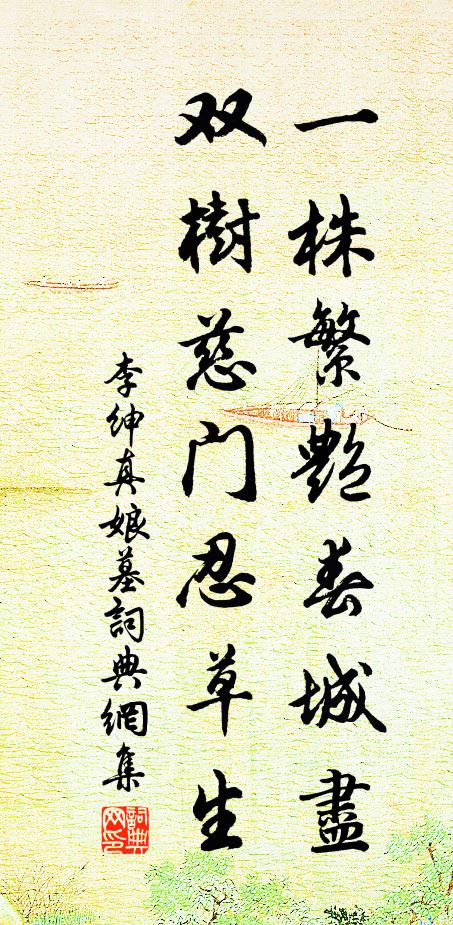 一株繁艷春城盡
双樹慈门忍草生
李绅真娘墓詞典網集
詞典网印